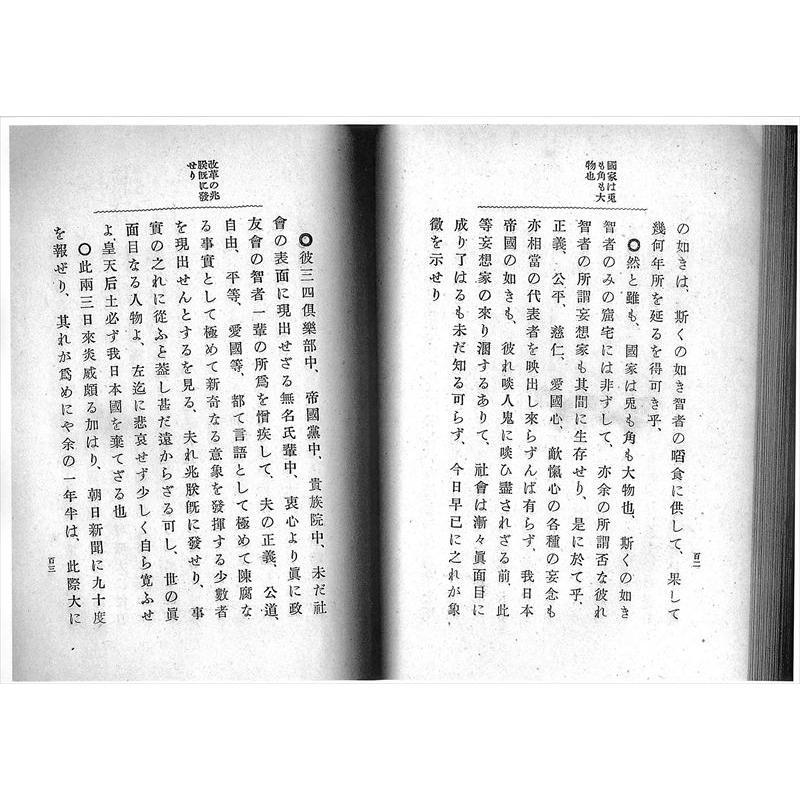 國家は兎
も角も大
物也
の如きは、斯くの如き智者の啗食に供して、果して
幾何年所を延るを得可き乎、
◎然と雖も、國家は兎も角も大物也、斯くの如き
智者のみの窟宅には非ずして、亦余の所謂否な彼れ
智者の所謂妄想家も其間に生存せり、是に於て乎、
正義、公平、慈仁、愛國心、敵愾心の各種の妄念も
亦相當の代表者を映出し來らずんば有らず、我日本
帝國の如きも、彼れ啖人鬼に啖ひ盡されざる前、此
等妄想家の來り溷するありて、社會は漸々眞面目に
成り了はるも未だ知る可らず、今日早已に之れが象
徴を示せり
百二
改革の兆
朕旣に發
せり
◎彼三四俱樂部中、帝國黨中、貴族院中、未だ社
會の表面に現出せざる無名氏輩中、衷心より眞に政
友會の智者一輩の所爲を憎疾して、夫の正義、公道、
自由、平等、愛國等、都て言語として極めて陳腐な
る事實として極めて新奇なる意象を發揮する少數者
を現出せんとするを見る、夫れ兆朕旣に發せり、事
實の之れに從ふと葢し甚だ遠からざる可し、世の眞
面目なる人物よ、左迄に悲哀せず少しく自ら寛ふせ
よ、皇天后土必ず我日本國を棄てざる也
◎此兩三日來炎威頗る加はり、朝日新聞に九十度
を報ぜり、其れが爲めにや余の一年半は、此際大に
百三